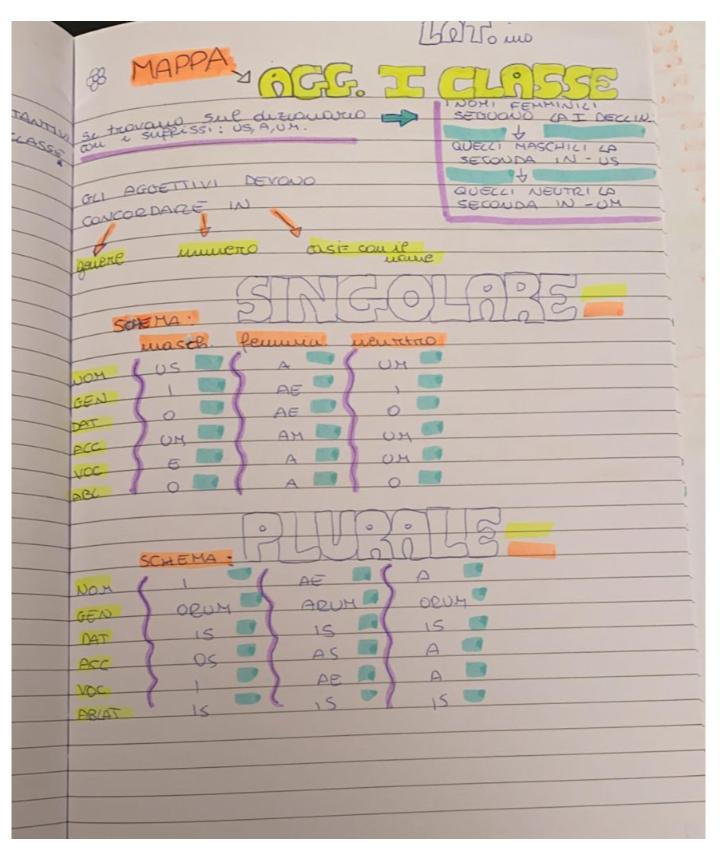 LAT. ino
MAPPA
AGG. I CLASSE
TANTIVI
CLASSE
si trovano sul dizionario
con i suffissi: US, A, UM.
I NOMI FEMMINILI
SEGUONO LA I DECLIN.
QUELLI MASCHILI LA
SECONDA IN -US
QUELLI NEUTRI LA
SECONDA IN -UM
GLI AGGETTIVI DEVONO
CONCORDARE IN
genere numero casi con il
nome
SINGOLARE
SCHEMA:
masch. femmina neutro
NOM US A UM
GEN I AE I
DAT O AE O
ACC UM AM UM
VOC E A UM
ABL O A O
PLURALE
SCHEMA:
NOM I AE A
GEN ORUM ARUM ORUM
DAT IS IS IS
ACC OS AS A
VOC I AE A
ABLAT IS IS IS